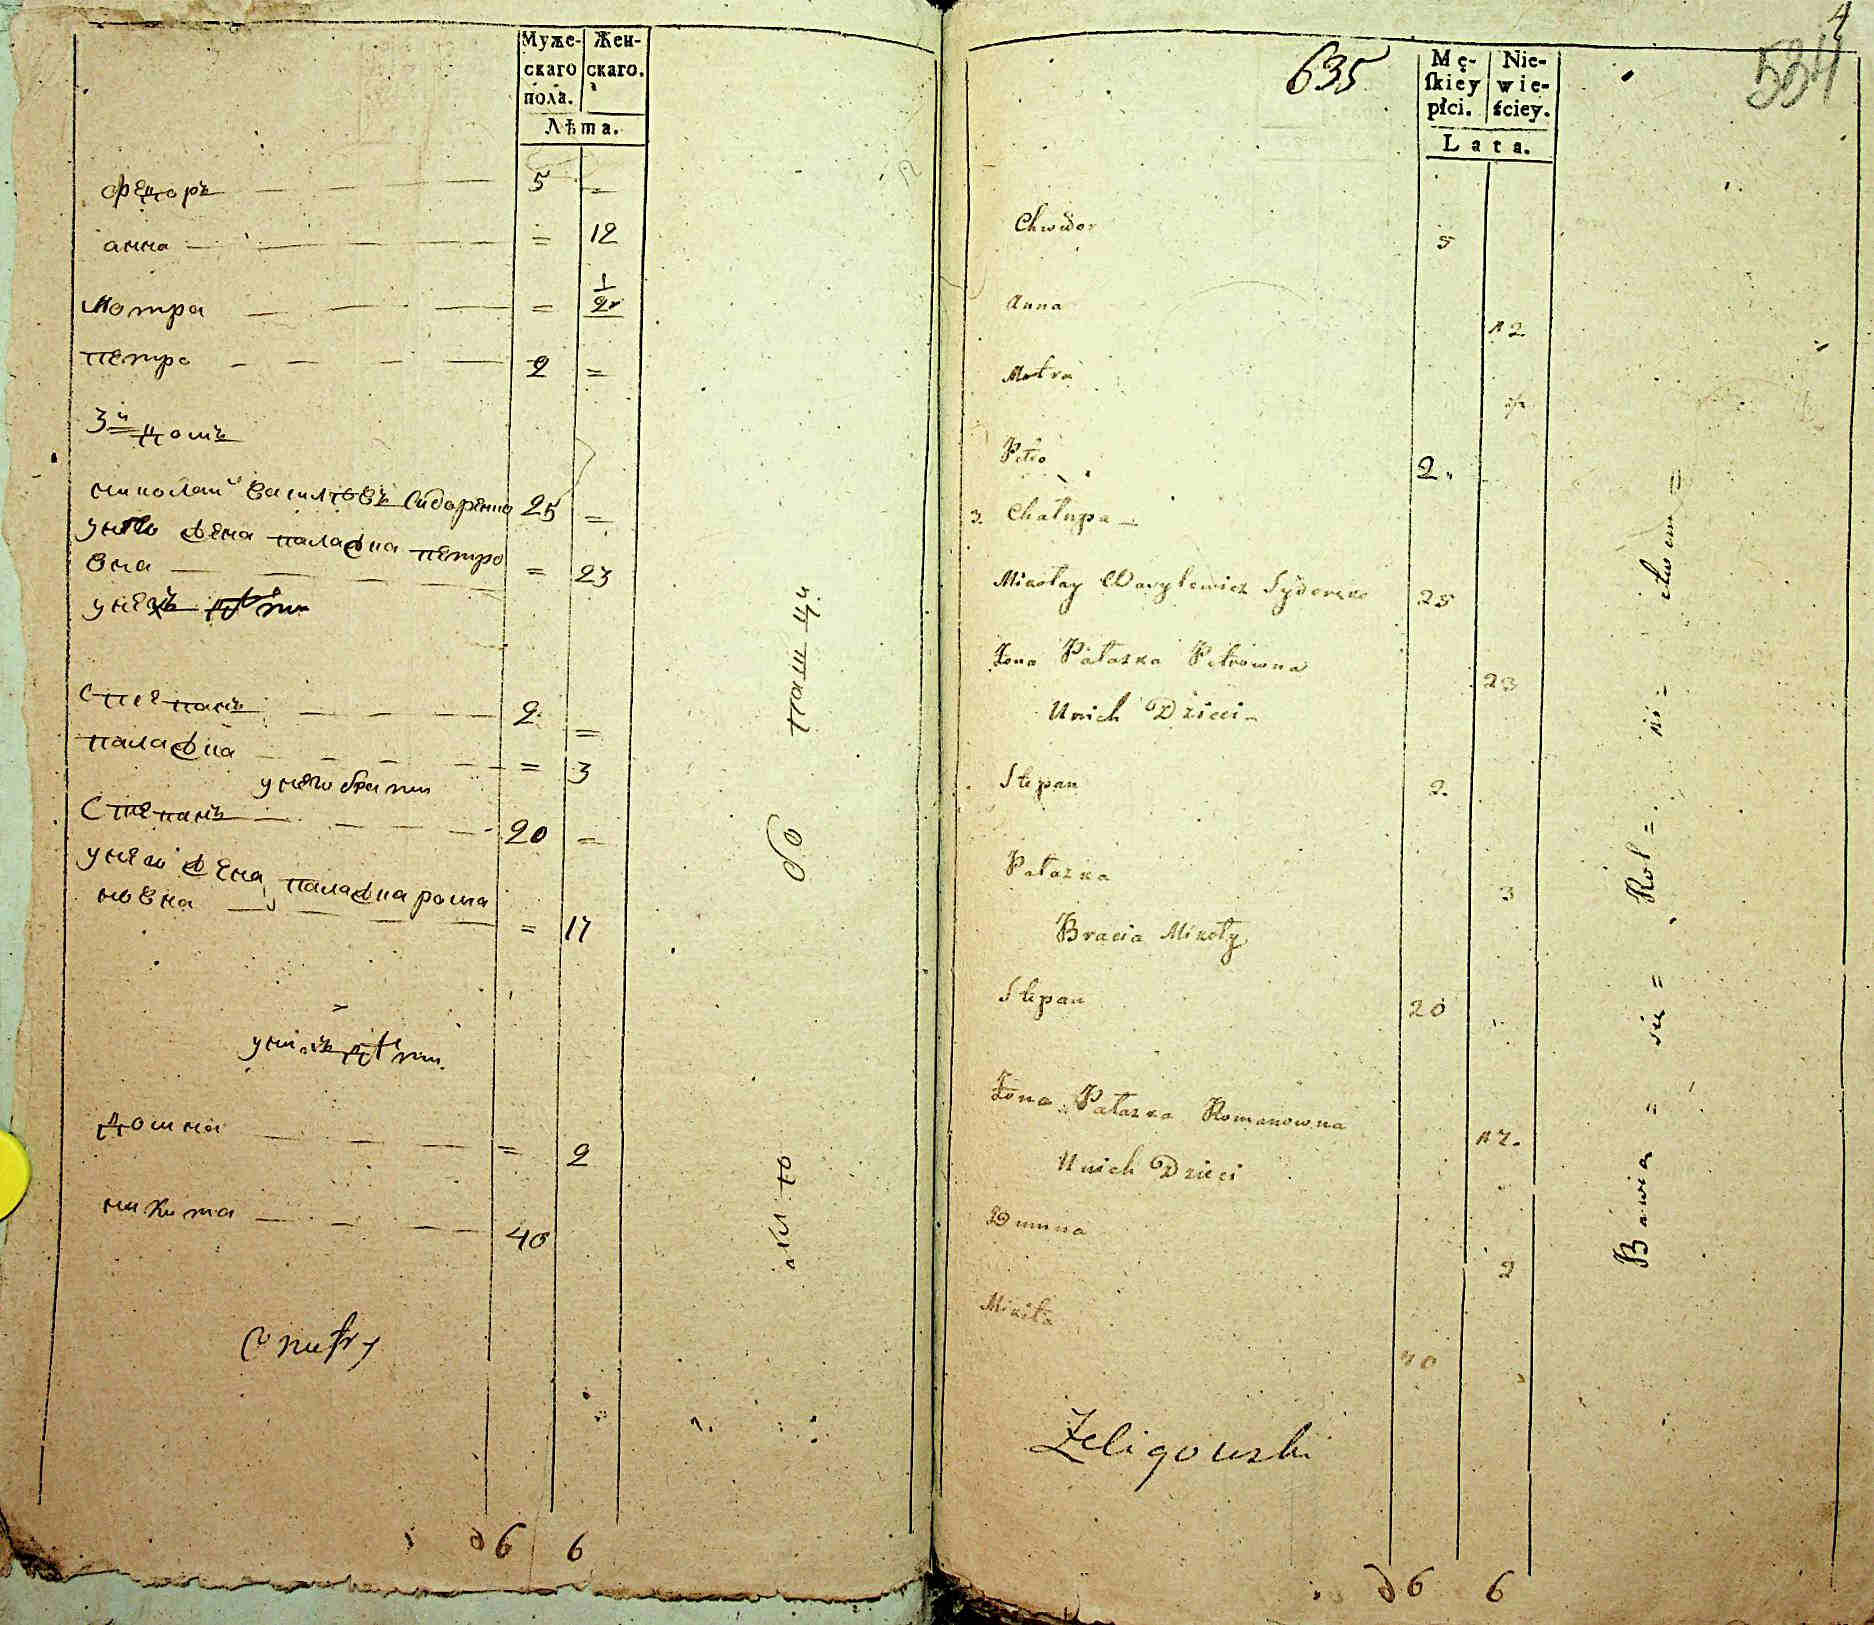 Муже-
скаго
пола.
Жен-
скаго.
Лѣта.
Федоръ 5 =
анна = 12
Мотра = 1/2
петро 2 =
3й домъ
николай васильевъ Сидоренко 25 =
унего жена палажка петро
вна = 23
унихъ дѣти
Степанъ 2 =
палажка = 3
унего брати
Степанъ 20 =
унего жена палажка рома
новна = 17
унихъ дѣти
домна = 2
никита 40
6 6
4
534
635
Mę-
ſkiey
płci.
Nie-
wie-
ściey.
Lata.
Chwedor 5
Anna 12
Motra
Petro 2.
3. Chałupa
Mikołay Wasylewicz Syderenko 25
Żona Pałazka Petrowna 23
Unich Dzieci
Stepan 2.
Pałazka 3
Bracia Mikoły
Stepan 20
Żona Pałazka Romanowna 17.
Unich Dzieci
Dumna 2
Mikita 40
Żeligowski
6 6
Bawią = się = Rol = ni = ctwem =